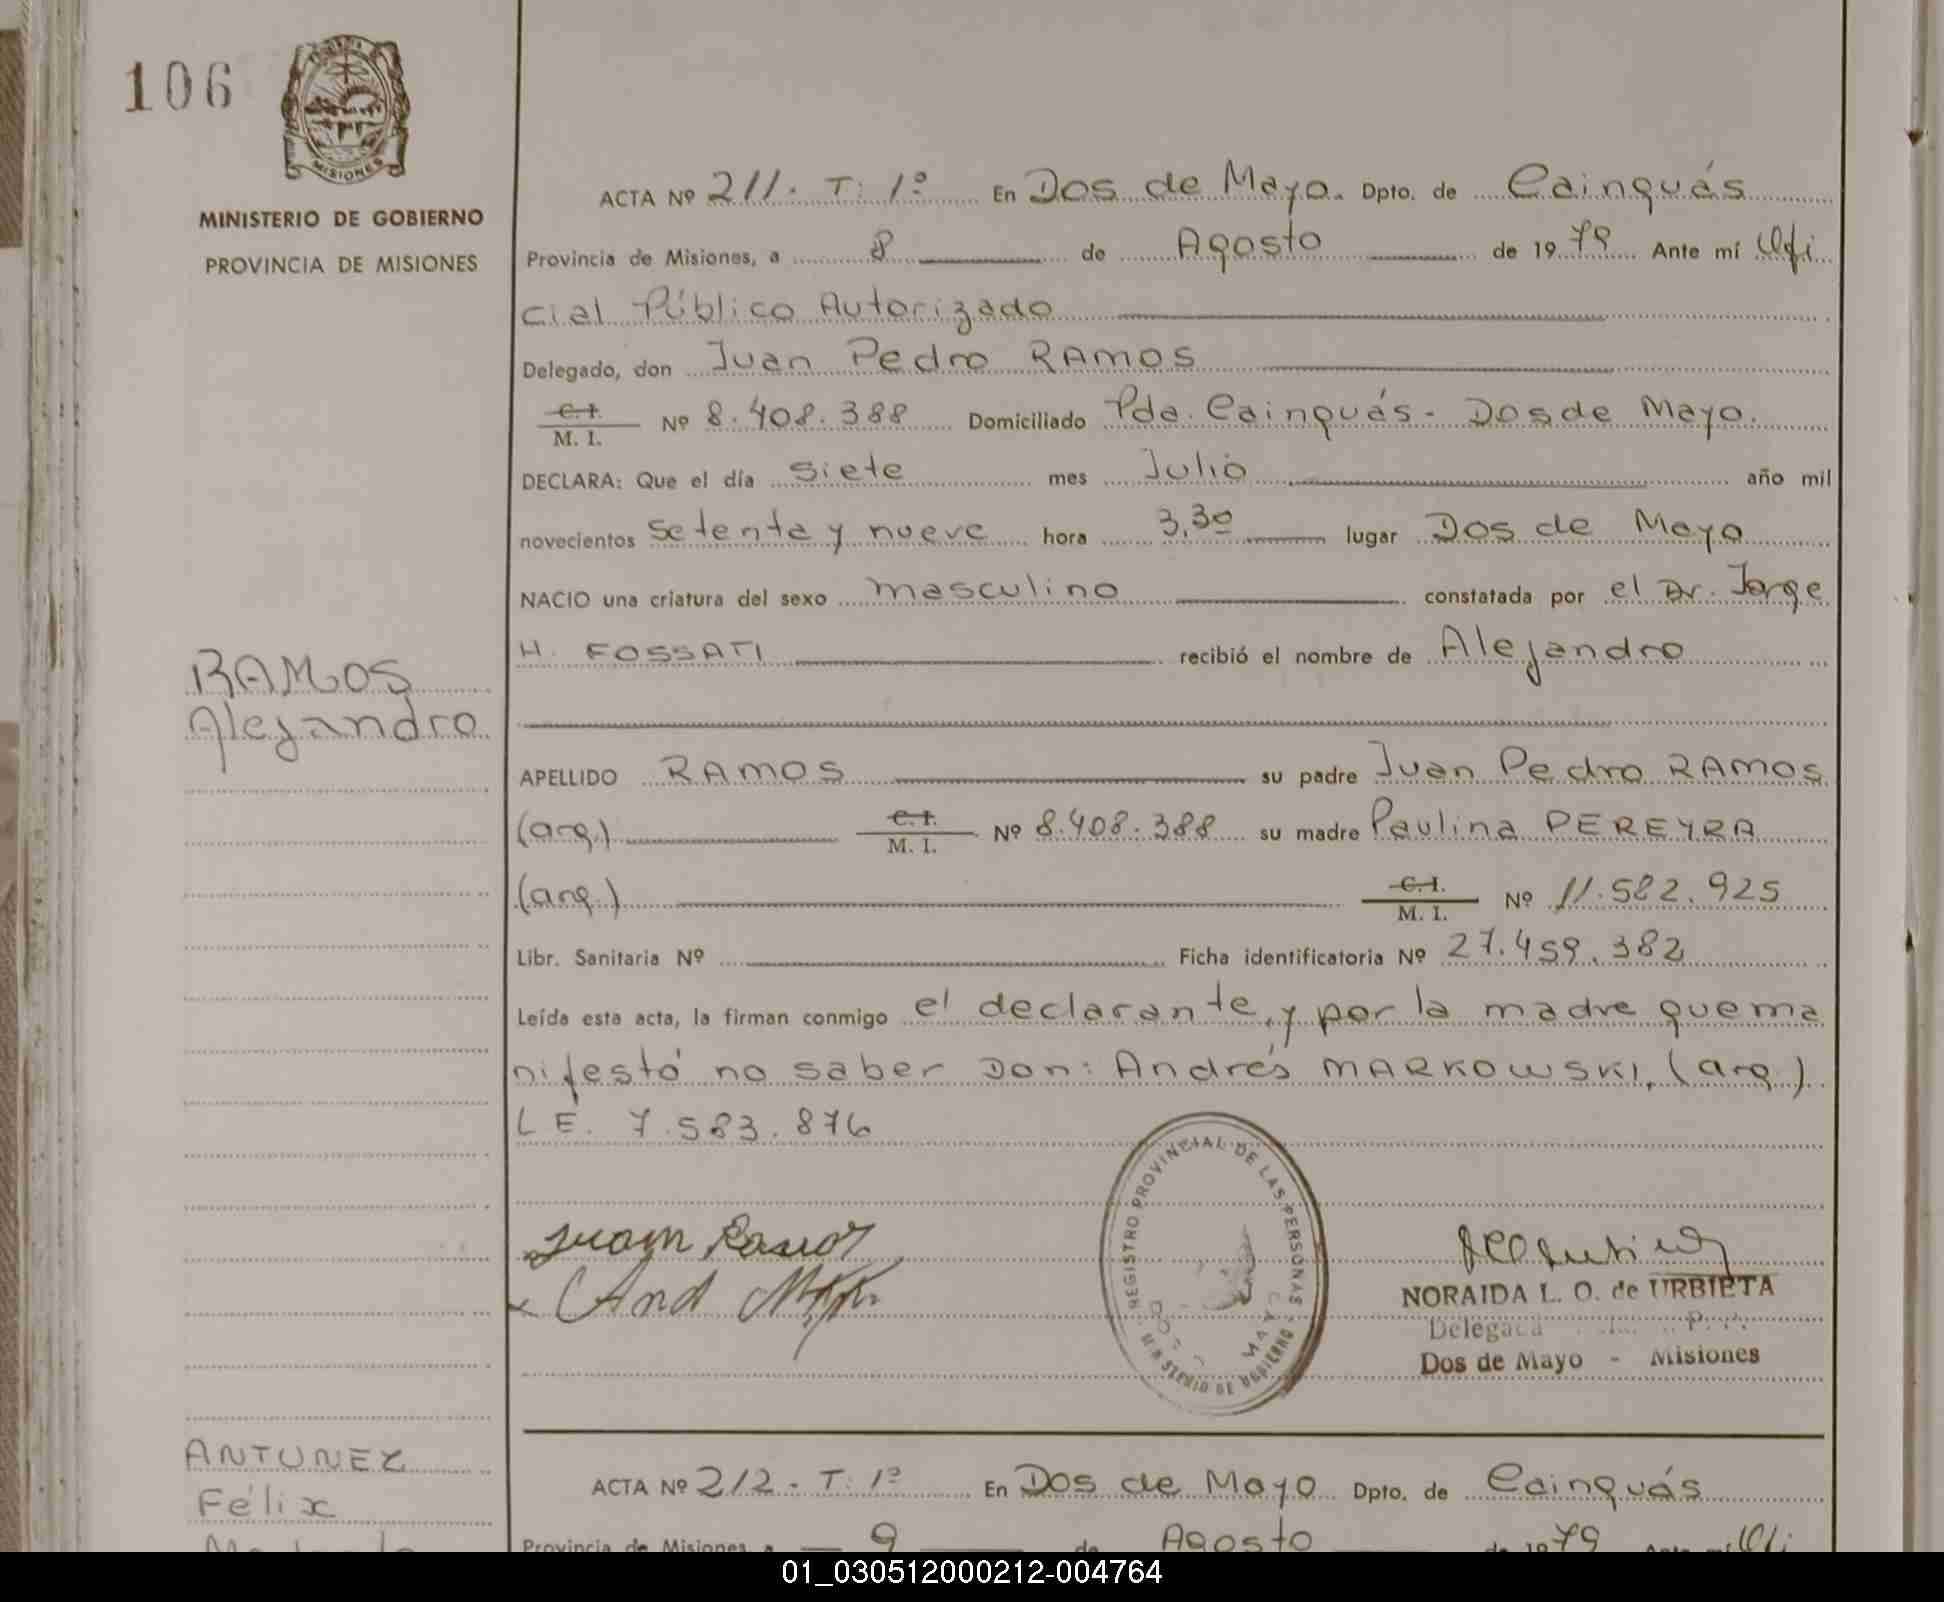 106
MISIONES
MINISTERIO DE GOBIERNO
PROVINCIA DE MISIONES
ACTA Nº 211. T: 1º En Dos de Mayo. Dpto. de Cainguás
Provincia de Misiones, a 8 de Agosto de 1979 Ante mí Ofi
cial Público Autorizado
Delegado, don Juan Pedro RAMOS
C.I.
M. I. Nº 8.408.388 Domiciliado Pda. Cainguás - Dos de Mayo.
DECLARA: Que el día siete mes Julio año mil
novecientos setenta y nueve hora 3,30 lugar Dos de Mayo
NACIO una criatura del sexo masculino constatada por el Dr. Jorge
H. FOSSATI recibió el nombre de Alejandro
RAMOS
Alejandro
APELLIDO RAMOS su padre Juan Pedro RAMOS
(arg.) C.I.
M. I. Nº 8.408.388 su madre Paulina PEREYRA
(arg.) C.I.
M. I. Nº 11.582.925
Libr. Sanitaria Nº Ficha identificatoria Nº 27.459.382
Leída esta acta, la firman conmigo el declarante, y por la madre que ma
nifestó no saber Don: Andrés MARKOWSKI, (arg.)
LE. 7.583.876
Juan Ramos
And
REGISTRO PROVINCIAL DE LAS PERSONAS
MINISTERIO DE GOBIERNO
DOS MAYO
NORAIDA L. O. de URBIETA
Delegada
Dos de Mayo - Misiones
ANTUNEZ
Félix
ACTA Nº 212 - T: 1º En Dos de Mayo Dpto. de Cainguás
Provincia de Misiones, a 9 de Agosto de 1979 Ante mí Ofi
01_030512000212-004764